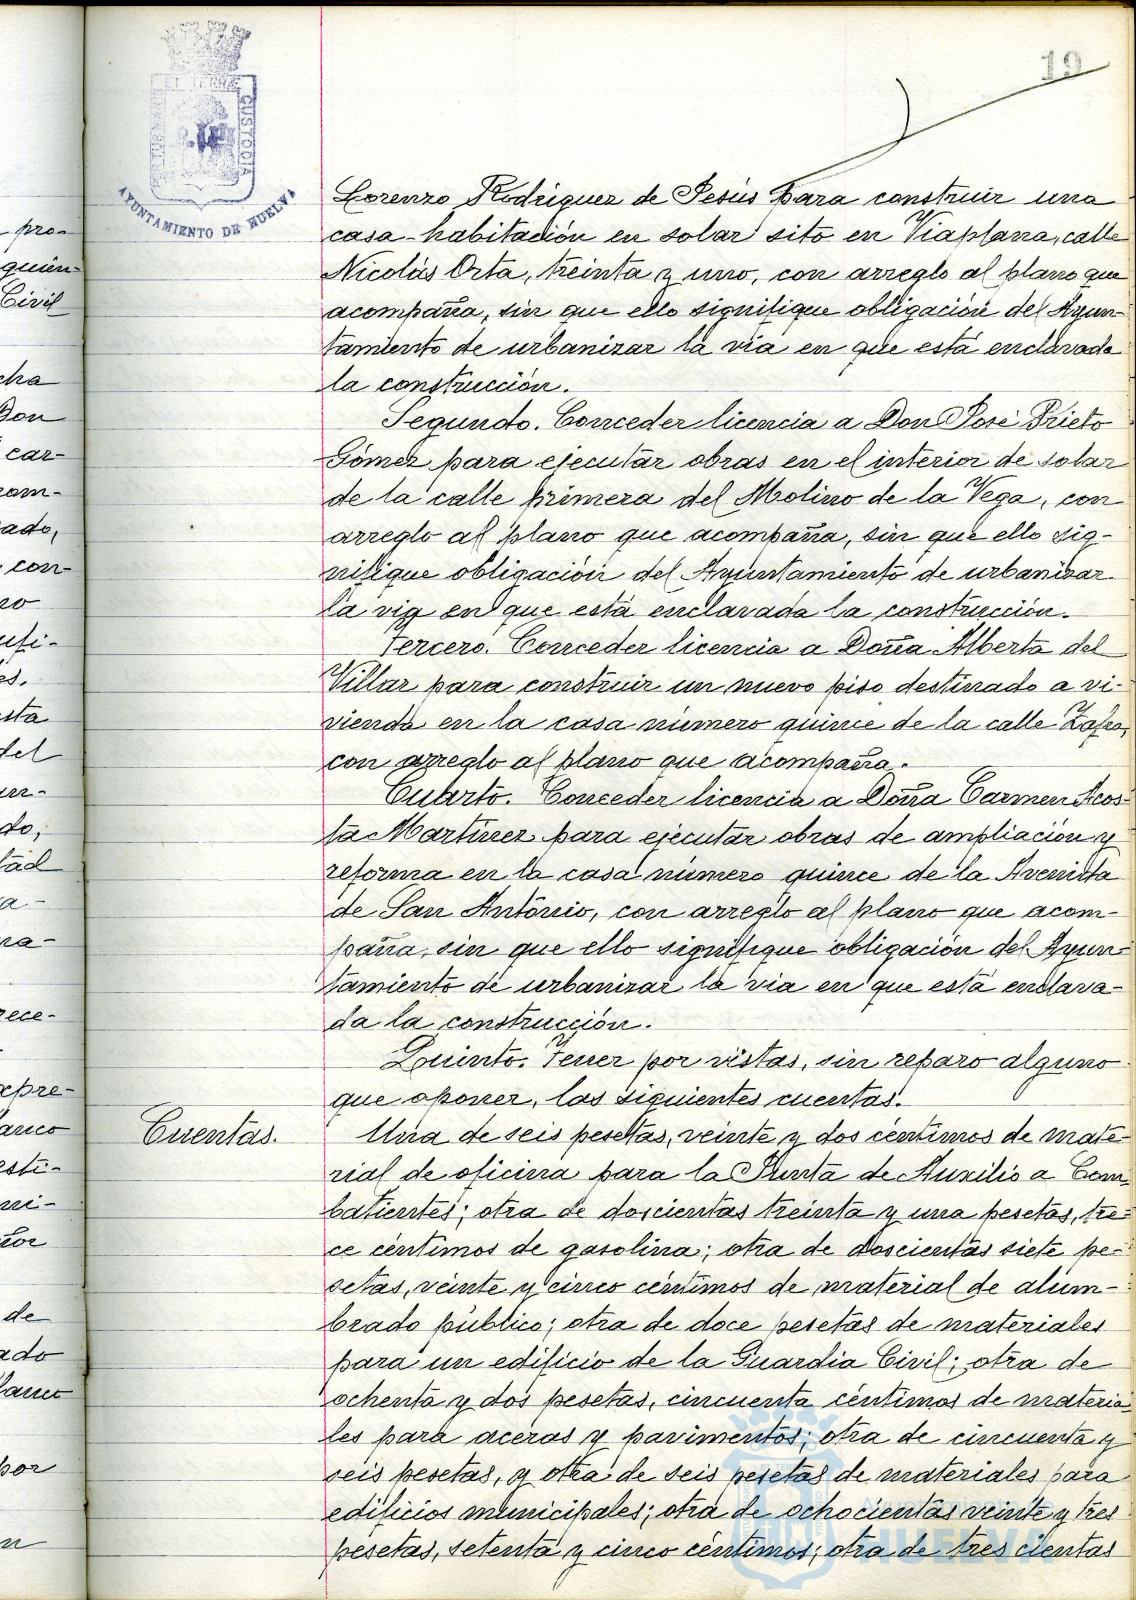 19
AYUNTAMIENTO DE HUELVA
CUSTODIA
Lorenzo Rodriguez de Jesús para construir una
casa-habitación en solar sito en Viaplana, calle
Nicolás Orta, treinta y uno, con arreglo al plano que
acompaña, sin que ello signifique obligación del Ayun-
tamiento de urbanizar la vía en que está enclavada
la construcción.
Segundo. Conceder licencia a Don José Prieto
Gómez para ejecutar obras en el interior de solar
de la calle primera del Molino de la Vega, con
arreglo al plano que acompaña, sin que ello sig-
nifique obligación del Ayuntamiento de urbanizar
la vía en que está enclavada la construcción.
Tercero. Conceder licencia a Doña Alberta del
Villar para construir un nuevo piso destinado a vi-
vienda en la casa número quince de la calle Zafra,
con arreglo al plano que acompaña.
Cuarto. Conceder licencia a Doña Carmen Acos-
ta Martínez para ejecutar obras de ampliación y
reforma en la casa número quince de la Avenida
de San Antonio, con arreglo al plano que acom-
paña, sin que ello signifique obligación del Ayun-
tamiento de urbanizar la vía en que está enclava-
da la construcción.
Quinto. Tener por vistas, sin reparo alguno
que oponer, las siguientes cuentas.
Cuentas.
Una de seis pesetas, veinte y dos céntimos de mate-
rial de oficina para la Junta de Auxilio a Com-
batientes; otra de doscientas treinta y una pesetas, tre-
ce céntimos de gasolina; otra de doscientas siete pe-
setas, veinte y cinco céntimos de material de alum-
brado público; otra de doce pesetas de materiales
para un edificio de la Guardia Civil; otra de
ochenta y dos pesetas, cincuenta céntimos de materia-
les para aceras y pavimentos; otra de cincuenta y
seis pesetas, y otra de seis pesetas de materiales para
edificios municipales; otra de ochocientas veinte y tres
pesetas, setenta y cinco céntimos; otra de tres cientas
HUELVA
pro-
quien-
Civil
cha
Don
car-
rom-
ado,
con-
no
ufi-
es.
sta
del
un-
do,
tad
a-
na-
rece-
xpre-
anco
esti-
ni-
ñor
de
ado
lanco
por
n